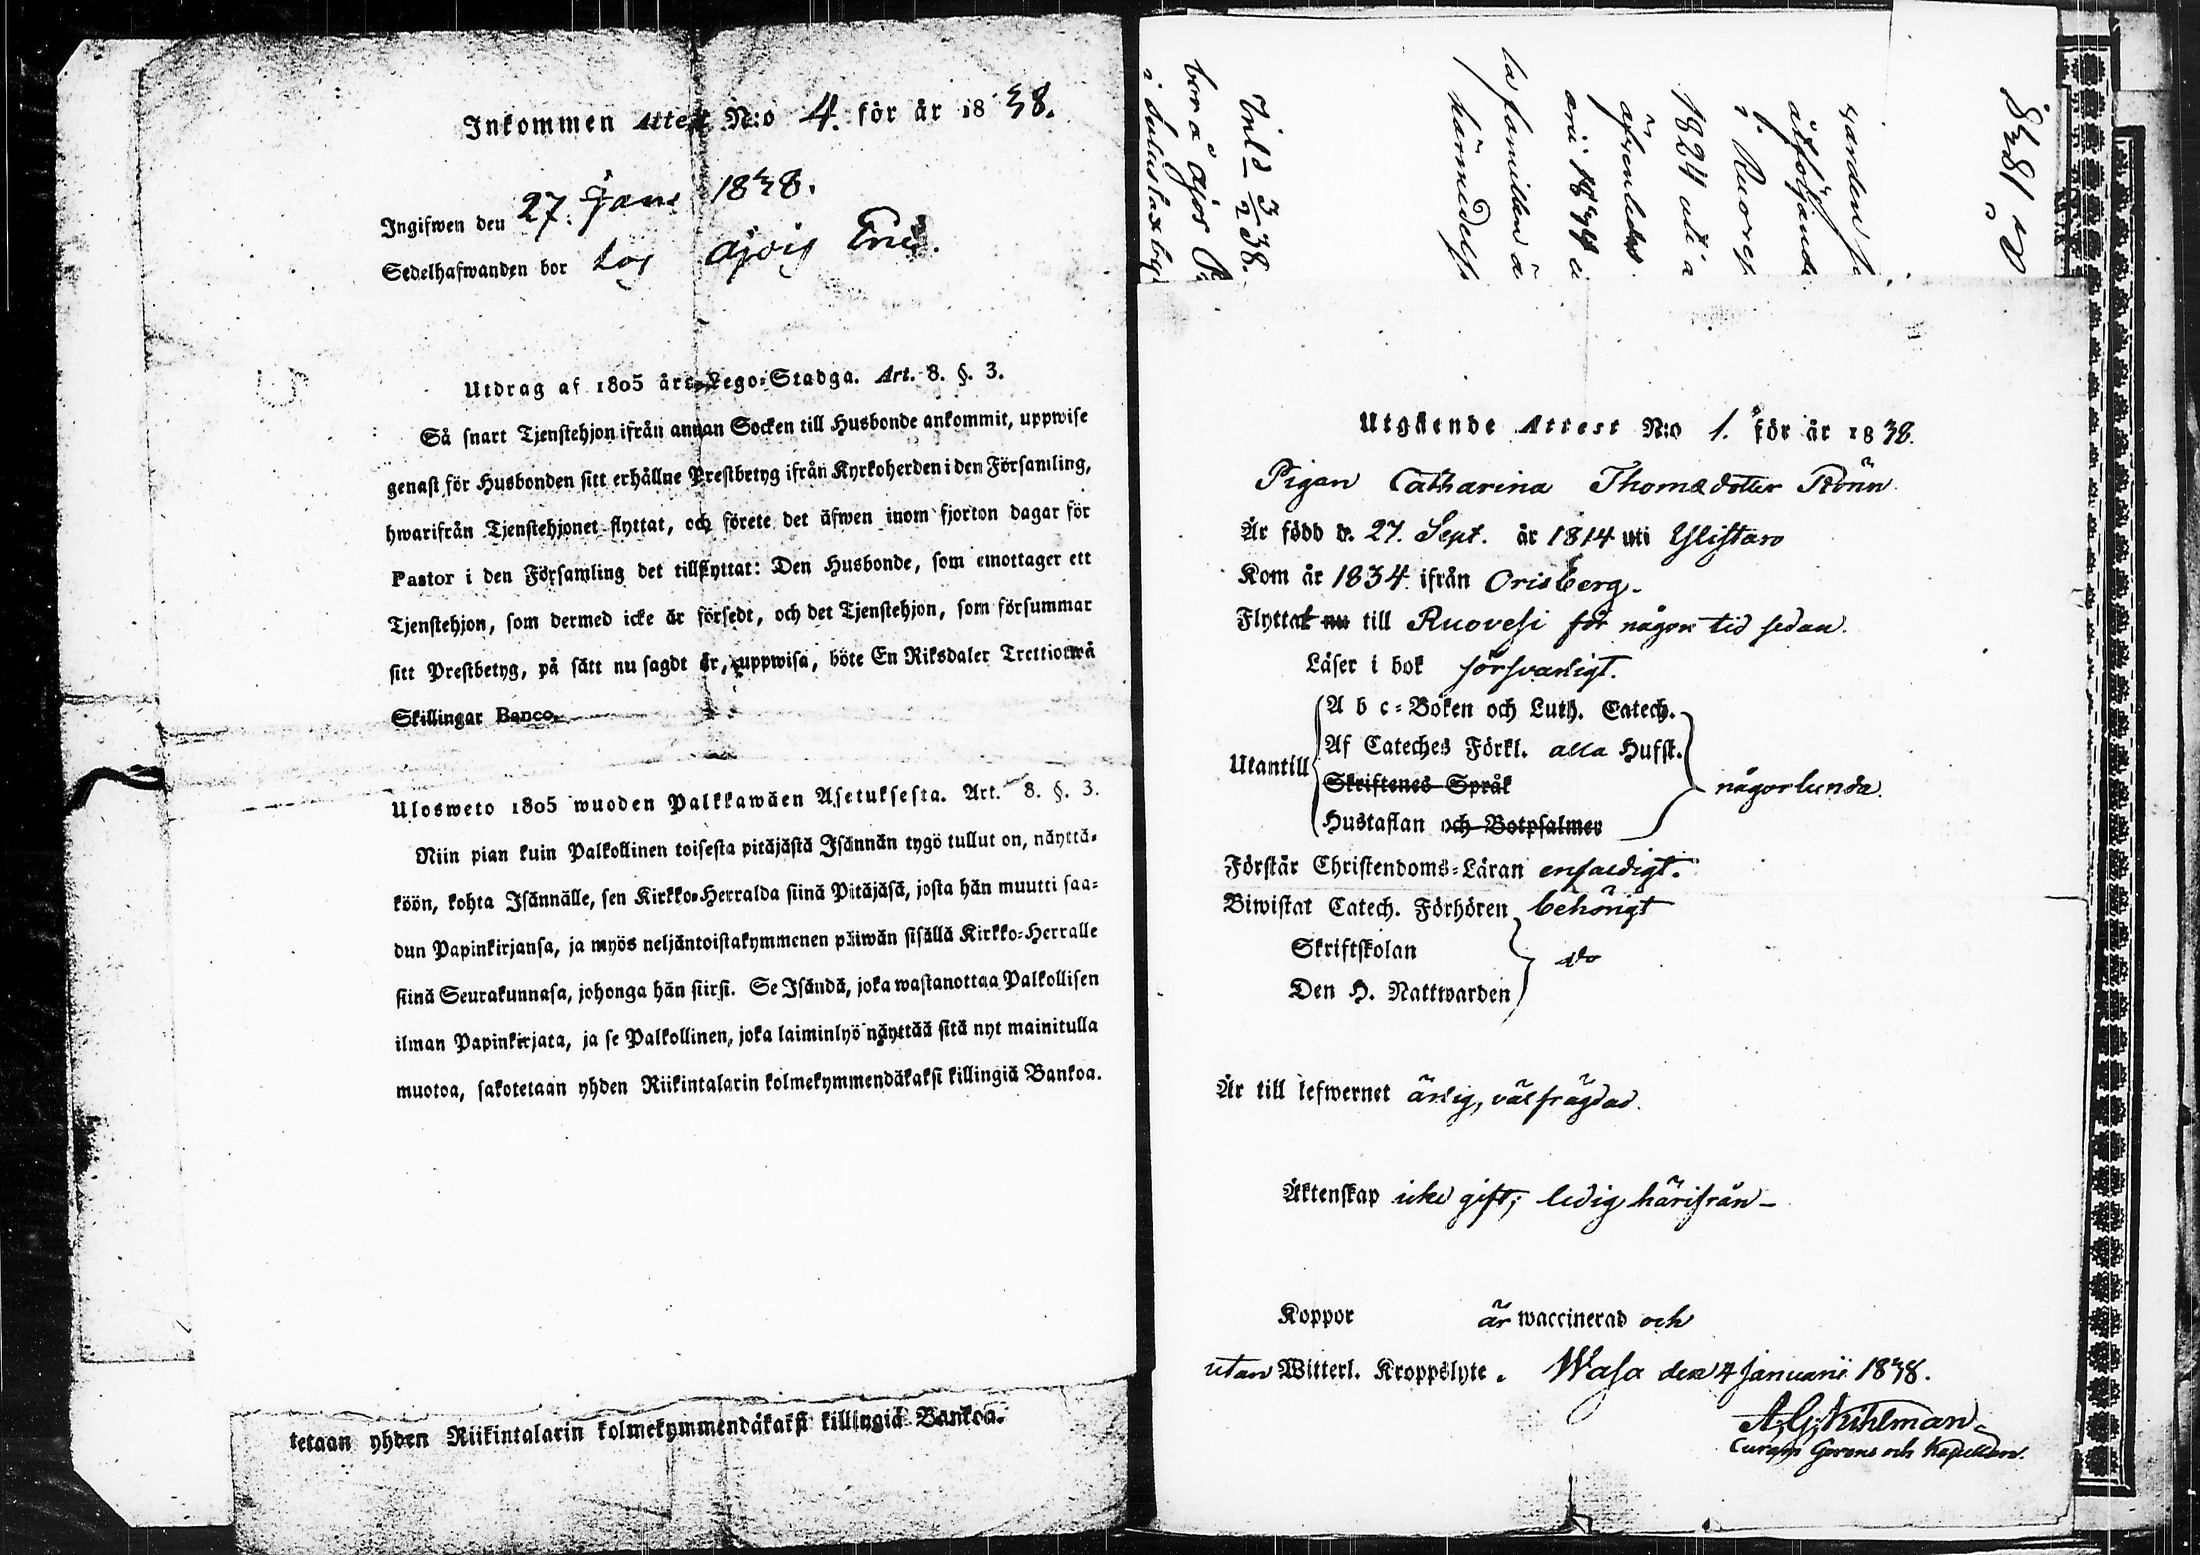 Inkommen Attest N:o 4. för år 1838.
Ingifwen den 27. Jan. 1838.
Sedelhafwanden bor hos
Utdrag af 1805 års Lego-Stadga. Art. 8. §. 3.
Så snart Tjenstehjon ifrån annan Socken till Husbonde ankommit, uppwise
genast för Husbonden sitt erhållne Prestbetyg ifrån Kyrkoherden i den Församling,
hwarifrån Tjenstehjonet flyttat, och förete det äfwen inom fjorton dagar för
Pastor i den Församling det tillflyttat: Den Husbonde, som emottager ett
Tjenstehjon, som dermed icke är försedt, och det Tjenstehjon, som försummar
sitt Prestbetyg, på sätt nu sagdt är, uppwisa, böte En Riksdaler Trettiotwå
Skillingar Banco.
Ulosweto 1805 wuoden Palkkawäen Asetuksesta. Art. 8. §. 3.
Niin pian kuin Palkollinen toisesta pitäjästä Isännän tygö tullut on, näyttä-
köön, kohta Isännälle, sen Kirkko-Herralda siinä Pitäjäsä, josta hän muutti saa-
dun Papinkirjansa, ja myös neljäntoistakymmenen päiwän sisällä Kirkko-Herralle
siinä Seurakunnasa, johonga hän siirsi. Se Isändä, joka wastanottaa Palkollisen
ilman Papinkirjata, ja se Palkollinen, joka laiminlyö näyttää sitä nyt mainitulla
muotoa, sakotetaan yhden Riikintalarin kolmekymmendäkaksi killingiä Bankoa.
tetaan yhden Riikintalarin kolmekymmendäkaksi killingiä Bankoa.
Inld 3/2 38.
bor å
1838
1824 uti
familien
härmedelst
Utgående Attest N:o 1. för år 1838.
Pigan Catharina Thomædotter Rönn
Är född d. 27. Sept. år 1814 uti Ylistaro
Kom år 1834 ifrån Orisberg.
Flyttat nu till Ruovesi för någon tid sedan.
Läser i bok försvarligt.
Utantill
A b c-Boken och Luth. Catech.
Af Cateches Förkl. alla Hufst.
Skriftenes Språk
Hustaflan och Botpsalmer
någorlunda.
Förstår Christendoms-Läran enfaldigt.
Biwistat Catech. Förhören behörigt
Skriftskolan
Den H. Nattwarden
do
Är till lefwernet ärlig, välfrägdad.
Äktenskap icke gift; ledig härifrån-
Koppor är waccinerad och
utan Witterl. Kroppslyte. Wasa den 4 Januarii 1838.
A. G. Kuhlman
Curam Gerens och Kapellan.